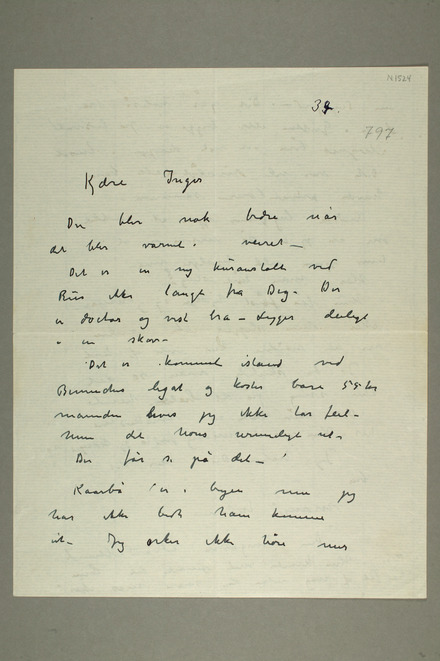 N 1524
39.
797.
Kjære Inger
Du blir nok bedre når
det blir varmt i veiret —
Det er en ny kuranstalt ved
Riis ikke langt fra Dig. Der
er doctor og vist bra — Ligger deiligt
i en skov —
Det er kommet istand ved
legat og koster bare 55 kr
maaneden hvis jeg ikke tar feil —
men det høres urimeligt ut —
Du får se på det —
Kaarbø er i byen men jeg
har ikke bedt ham komme
ut — Jeg orker ikke høre mer